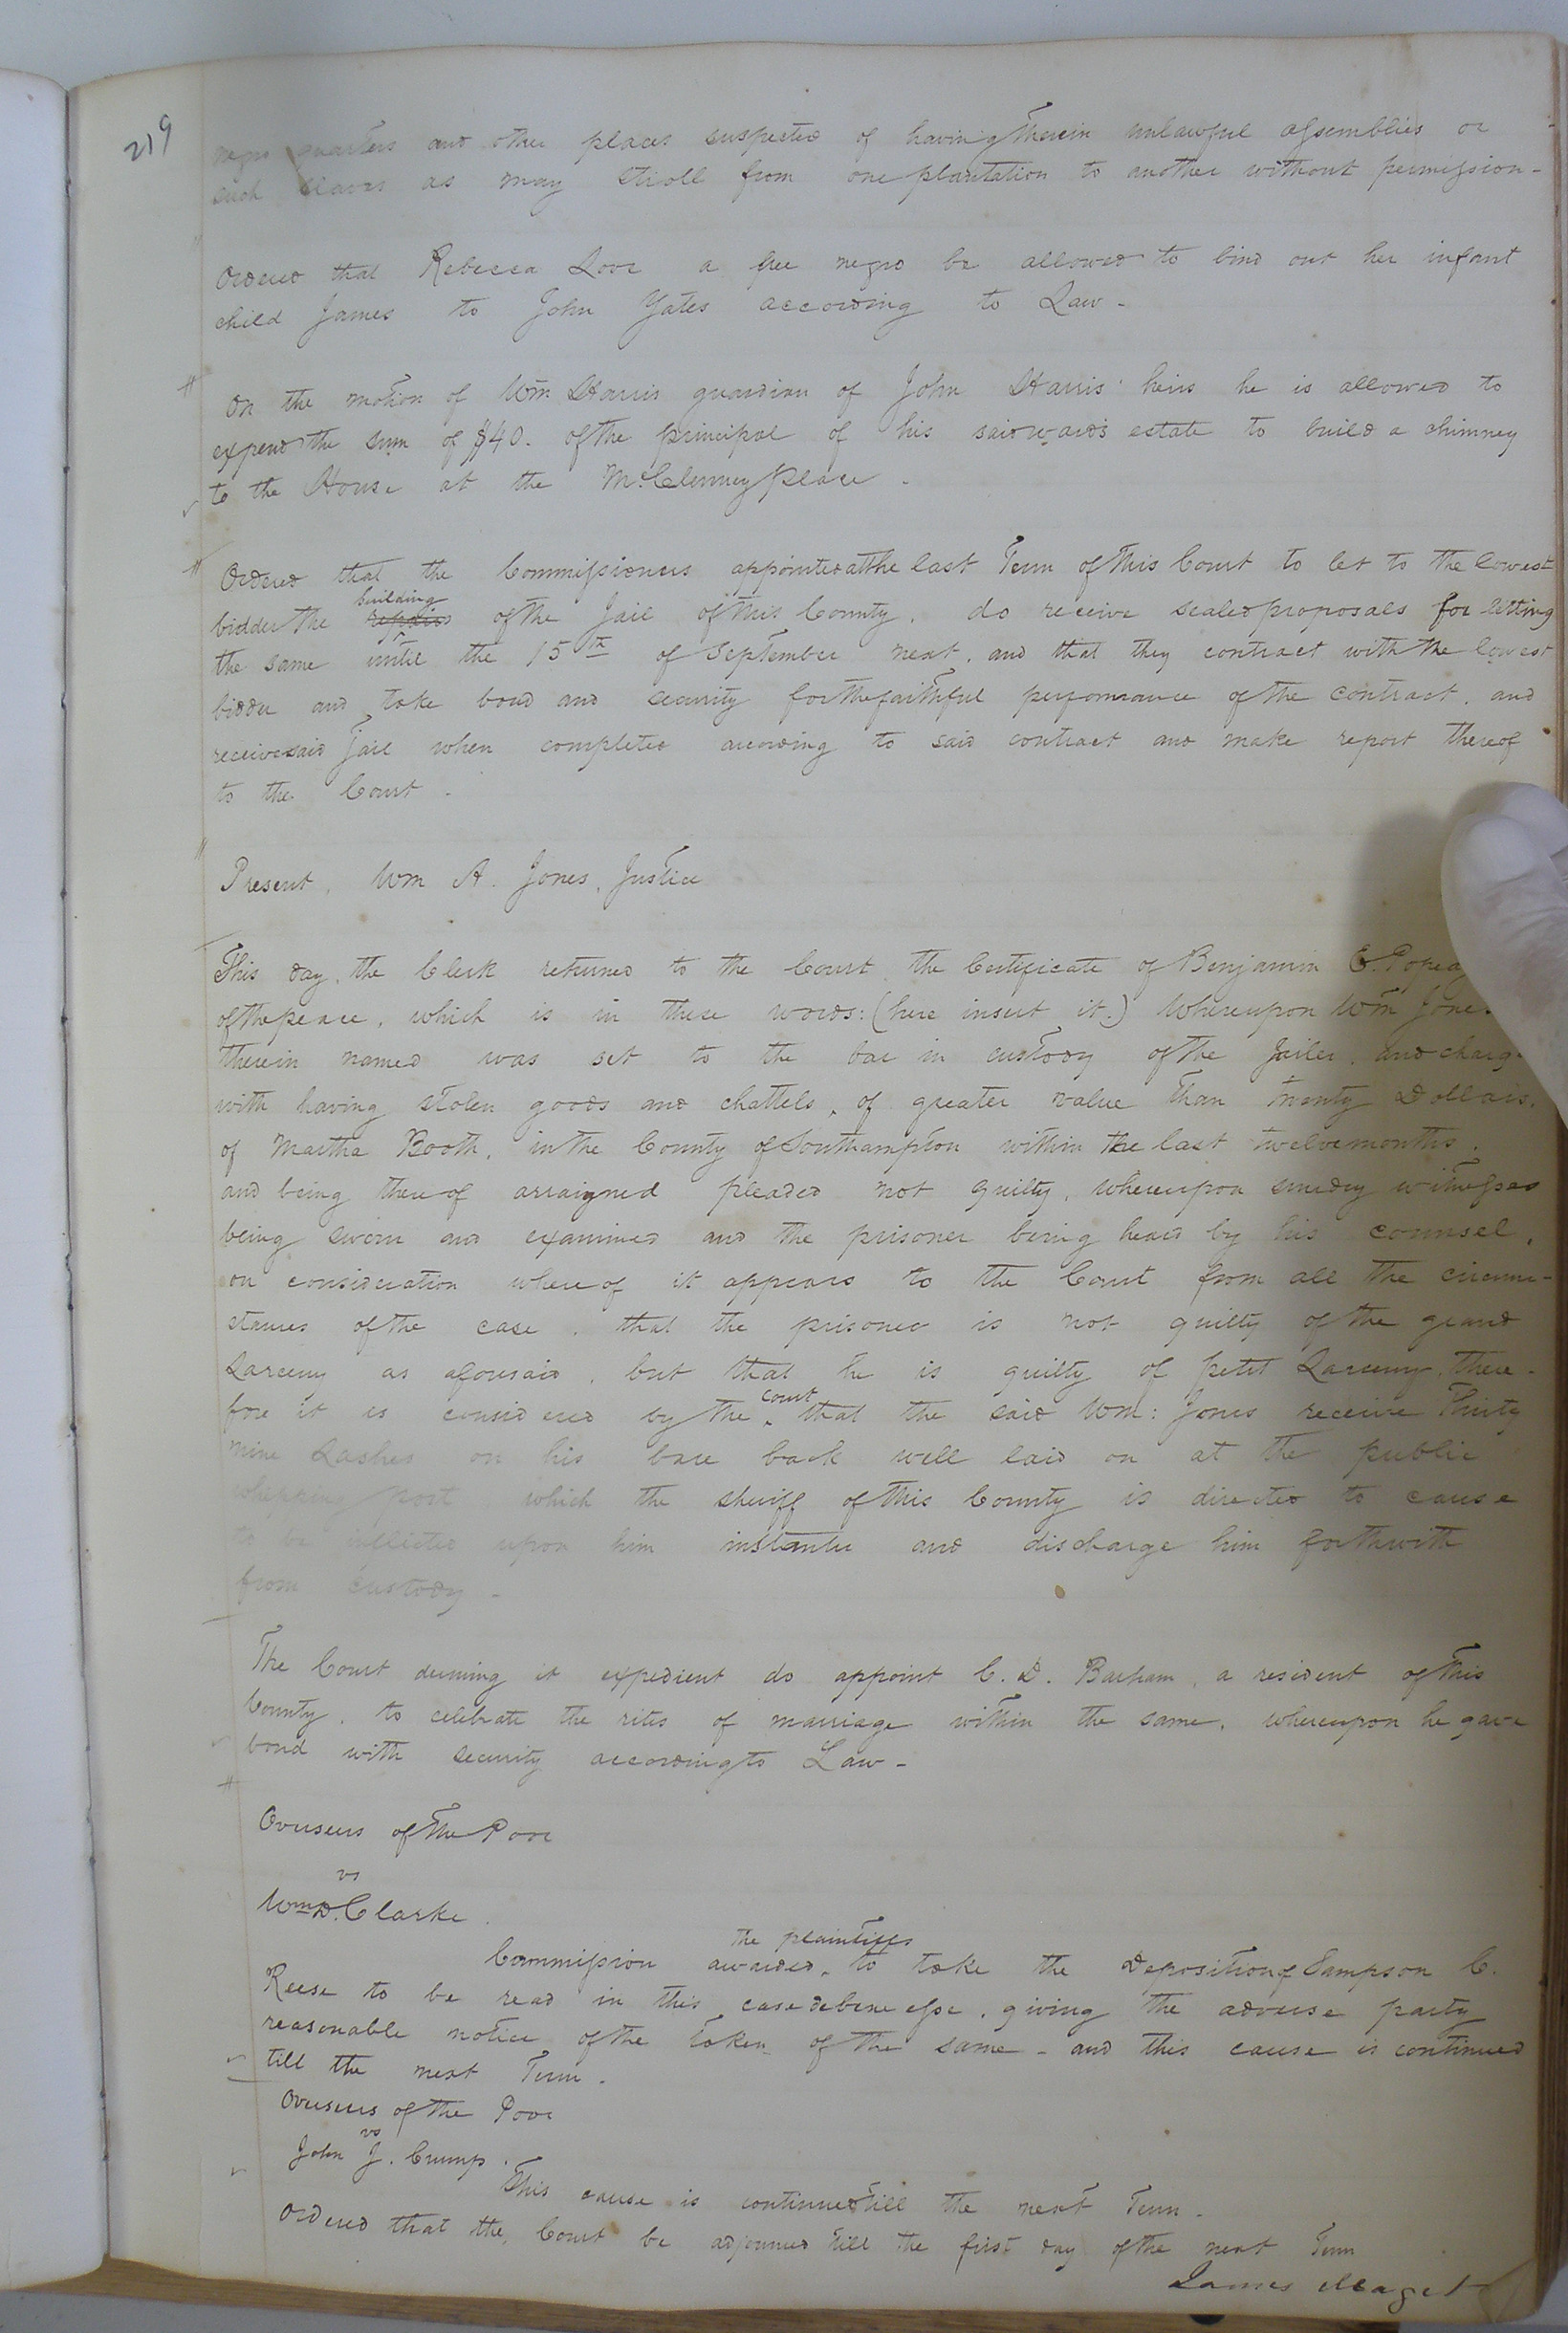 219
negro quarters and other places suspected of having therein unlawful assemblies or
such slaves as may stroll from one plantation to another without permission-
Ordered that Rebecca Love a free negro be allowed to bind out her infant
child James to John Yates according to Law -
On the motion of Wm Harris guardian of John Harris' heirs he is allowed to
expend the sum of $40. of the principal of his said wards estate to build a chimney
to the House at the McClenney place .
Ordered that the Commissioners appointed at the last Term of this Court to let to the lowest
building
bidder the repairs of the Jail of this County, do receive sealed proposals for letting
the same until the 15th of September next, and that they contract with the lowest
bidder and take bond and security for the faithful performance of the contract, and
receive said jail when completed according to said contract and make report thereof
to the Court .
Present, Wm A. Jones, Justice
This day, the Clerk returned to the Court the Certificate of Benjamin E. Pope a
of the peace, which is in these words: (here insert it.) Whereupon Wm Jones
therein named was set to the bar in custody of the Jailer, and charg
with having stolen goods and chattels, of greater value than twenty Dollars,
of Martha Booth, in the County of Southampton within the last twelve months,
and being thereof arraigned pleaded not guilty, whereupon sundry witnesses
being sworn and examined and the prisoner being heard by his counsel,
on consideration whereof it appears to the Court from all the circum-
stances of the case, that the prisoner is not guilty of the grand
Larceny as aforesaid, but that he is guilty of petit Larceny, there-
court
fore it is considered by the that the said Wm: Jones receive Thirty
nine Lashes on his bare back well laid on at the public
whipping post which the sheriff of this County is directed to cause
to be inflicted upon him instanter and discharge him forthwith
from custody -
The Court deeming it expedient do appoint C. D. Barham, a resident of this
County, to celebrate the rites of marriage within the same, whereupon he gave
bond with security according to Law -
Overseers of the Poor
vs
Wm D. Clarke.
the plaintiffs
Commission awarded, to take the Deposition of Sampson C.
Reese to be read in this case debene esse, giving the adverse party
reasonable notice of the token of the same - and this cause is continued
till the next Term .
Overseers of the Poor
vs
John J. Crump .
This cause is continued till the next Term -
Ordered that the Court be adjourned till the first day of the next Term
James Maget